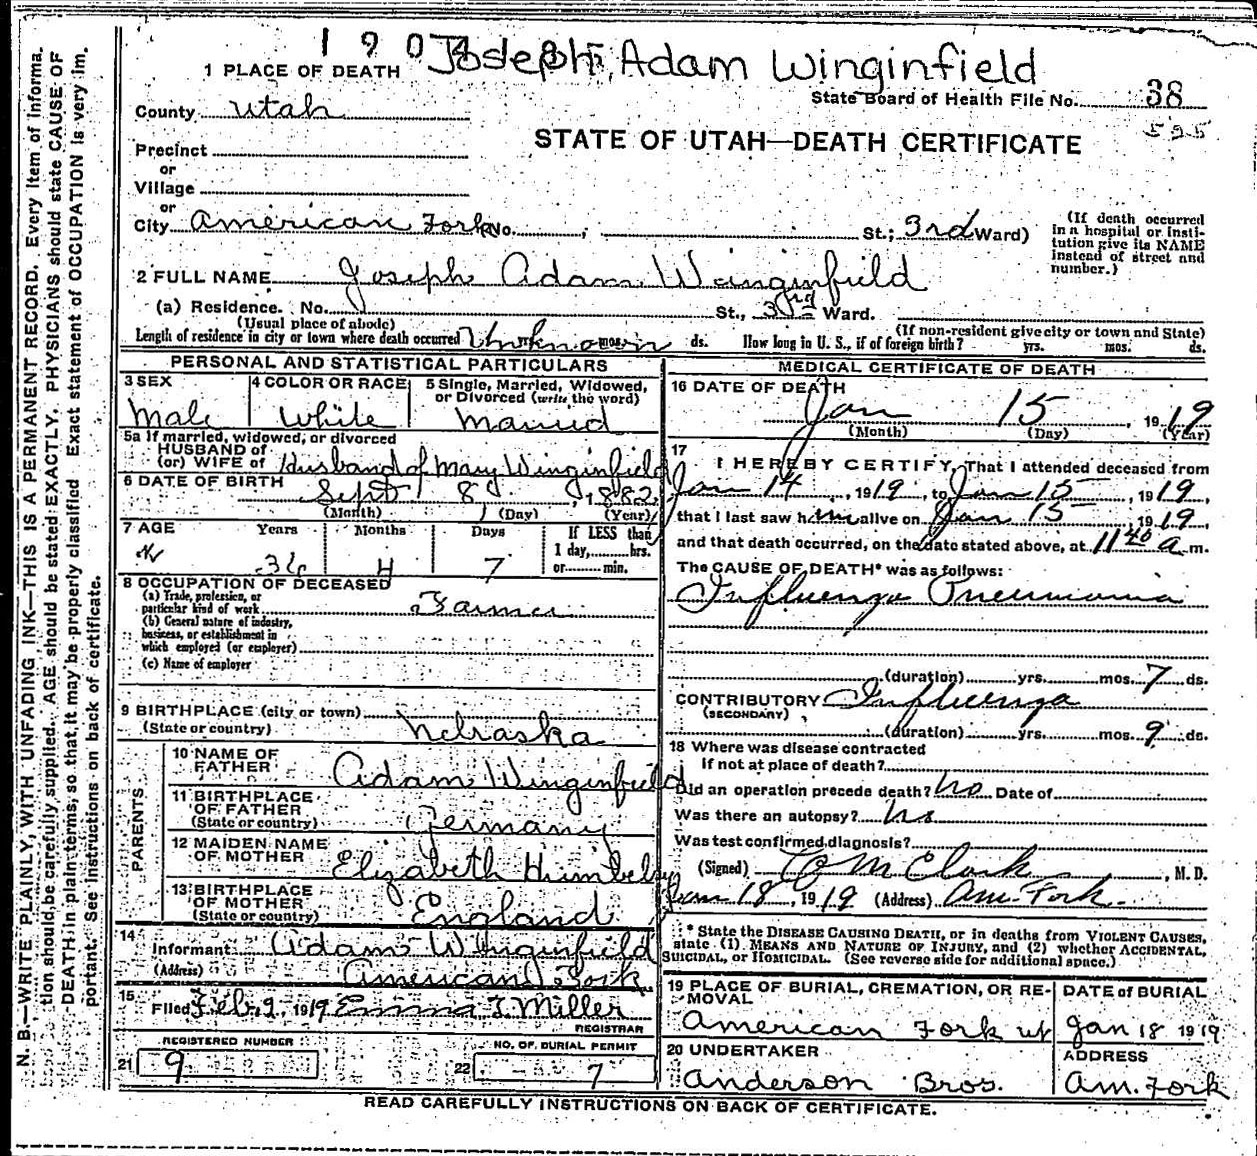 1 9 0 4 8 5 Joseph Adam Winginfield
1 PLACE OF DEATH
State Board of Health File No. 38
595
County Utah
STATE OF UTAH—DEATH CERTIFICATE
Precinct
or
Village
or
City American Fork No. , St.; 3rd Ward)
(If death occurred in a hospital or institution give its NAME instead of street and number.)
2 FULL NAME Joseph Adam Winginfield
(a) Residence. No. St., 3rd Ward.
(Usual place of abode) (If non-resident give city or town and State)
Length of residence in city or town where death occurred Unknown ds. How long in U. S., if of foreign birth? yrs. mos. ds.
PERSONAL AND STATISTICAL PARTICULARS
3 SEX
Male
4 COLOR OR RACE
White
5 Single, Married, Widowed, or Divorced (write the word)
Married
5a If married, widowed, or divorced
HUSBAND of
(or) WIFE of Husband of Mary Winginfield
6 DATE OF BIRTH Sept 8 , 1882
(Month) (Day) (Year)
7 AGE Years Months Days If LESS than
1 day, hrs.
or min.
36 4 7
8 OCCUPATION OF DECEASED
(a) Trade, profession, or
particular kind of work Farmer
(b) General nature of industry,
business, or establishment in
which employed (or employer)
(c) Name of employer
9 BIRTHPLACE (city or town)
(State or country) Nebraska
PARENTS
10 NAME OF
FATHER Adam Winginfield
11 BIRTHPLACE
OF FATHER
(State or country) Germany
12 MAIDEN NAME
OF MOTHER Elizabeth
13 BIRTHPLACE
OF MOTHER
(State or country) England
14
Informant Adam Winginfield
(Address) American Fork
15
Filed Feb. 2, 1919 Emma I. Miller
REGISTRAR
REGISTERED NUMBER
21 9
NO. OF BURIAL PERMIT
22 7
MEDICAL CERTIFICATE OF DEATH
16 DATE OF DEATH
Jan 15 , 1919
(Month) (Day) (Year)
17
I HEREBY CERTIFY, That I attended deceased from
Jan 14 , 1919, to Jan 15 , 1919,
that I last saw him alive on Jan 15 1919,
and that death occurred, on the date stated above, at 11 40 a m.
The CAUSE OF DEATH* was as follows:
Influenza Pneumonia
(duration) yrs. mos. 7 ds.
CONTRIBUTORY Influenza
(SECONDARY)
(duration) yrs. mos. 9 ds.
18 Where was disease contracted
If not at place of death?
Did an operation precede death? No Date of
Was there an autopsy? No
Was test confirmed diagnosis?
(Signed) C M Clark , M. D.
Jan 18, 1919 (Address) Am. Fork.
* State the DISEASE CAUSING DEATH, or in deaths from VIOLENT CAUSES,
state (1) MEANS AND NATURE OF INJURY, and (2) whether ACCIDENTAL,
SUICIDAL, or HOMICIDAL. (See reverse side for additional space.)
19 PLACE OF BURIAL, CREMATION, OR RE-
MOVAL
American Fork Ut
DATE of BURIAL
Jan 18 1919
20 UNDERTAKER
Anderson Bros.
ADDRESS
Am. Fork
READ CAREFULLY INSTRUCTIONS ON BACK OF CERTIFICATE.
N. B.—WRITE PLAINLY, WITH UNFADING INK—THIS IS A PERMANENT RECORD. Every item of informa-
tion should be carefully supplied. AGE should be stated EXACTLY. PHYSICIANS should state CAUSE OF
DEATH in plain terms, so that it may be properly classified. Exact statement of OCCUPATION is very im-
portant. See instructions on back of certificate.